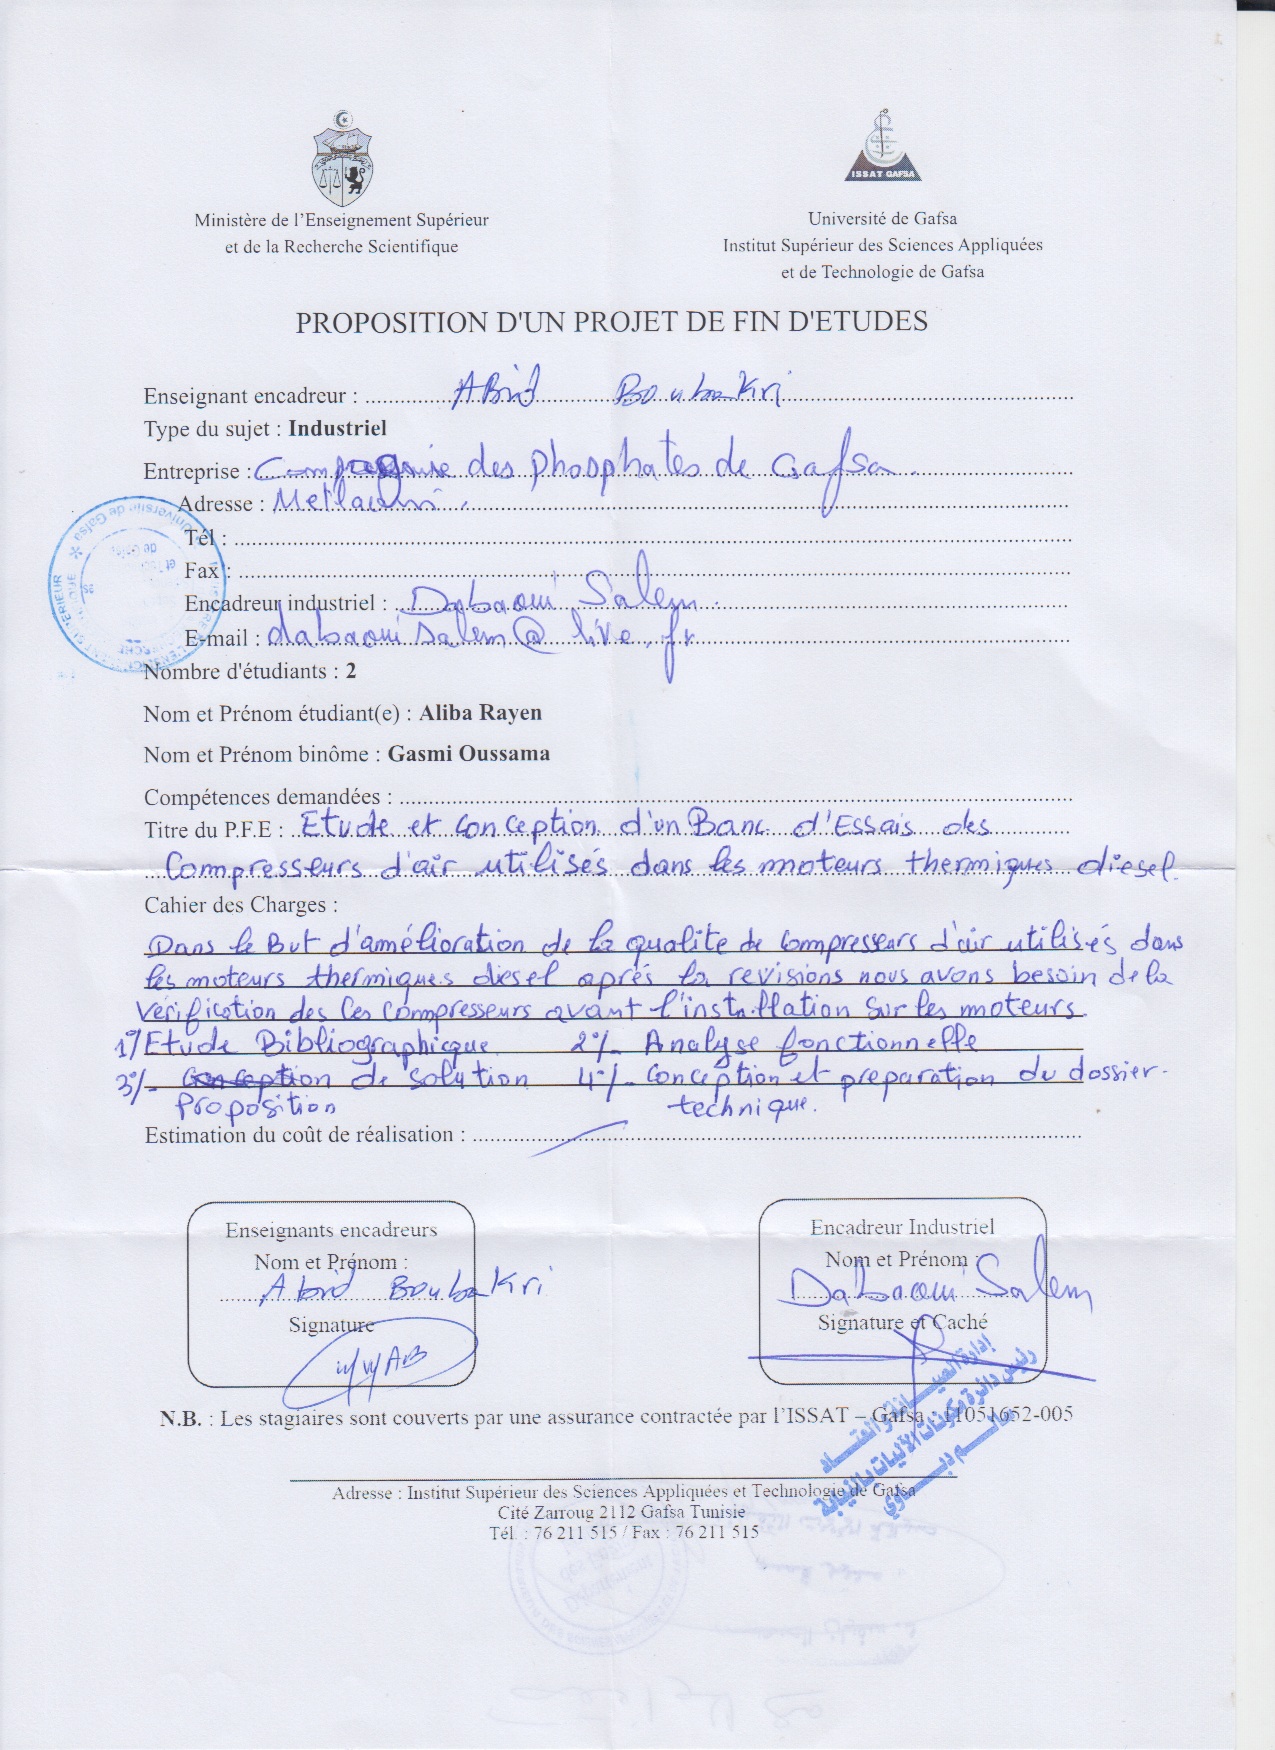 ISSAT GAFSA
Ministère de l'Enseignement Supérieur
et de la Recherche Scientifique
Université de Gafsa
Institut Supérieur des Sciences Appliquées
et de Technologie de Gafsa
PROPOSITION D'UN PROJET DE FIN D'ETUDES
Enseignant encadreur : Abid Boubakri
Type du sujet : Industriel
Entreprise : Compagnie des Phosphates de Gafsa.
Adresse : Metlaoui.
Tél :
Fax :
Encadreur industriel : Dabaoui Salem.
E-mail : dabaouisalem@live.fr
Nombre d'étudiants : 2
Nom et Prénom étudiant(e) : Aliba Rayen
Nom et Prénom binôme : Gasmi Oussama
Compétences demandées :
Titre du P.F.E : Etude et Conception d'un Banc d'Essais des
Compresseurs d'air utilisés dans les moteurs thermiques diesel.
Cahier des Charges :
Dans le But d'amélioration de la qualité de Compresseurs d'air utilisés dans
les moteurs thermiques diesel après la revisions nous avons besoin de la
Vérification des Ces Compresseurs avant l'installation Sur les moteurs.
1°/ Etude Bibliographique 2°/- Analyse fonctionnelle
3°/- de Solution 4°/- Conception et preparation du dossier
Proposition technique.
Estimation du coût de réalisation :
Enseignants encadreurs
Nom et Prénom :
Abid Boubakri
Signature
Encadreur Industriel
Nom et Prénom :
Dabaoui Salem
Signature et Caché
إدارة الصيانة والعتاد
رئيس دائرة مكونات الآليات بالنيابة
سالم دبوي
N.B. : Les stagiaires sont couverts par une assurance contractée par l'ISSAT – Gafsa 11051652-005
Adresse : Institut Supérieur des Sciences Appliquées et Technologie de Gafsa
Cité Zarroug 2112 Gafsa Tunisie
Tél. : 76 211 515 / Fax : 76 211 515